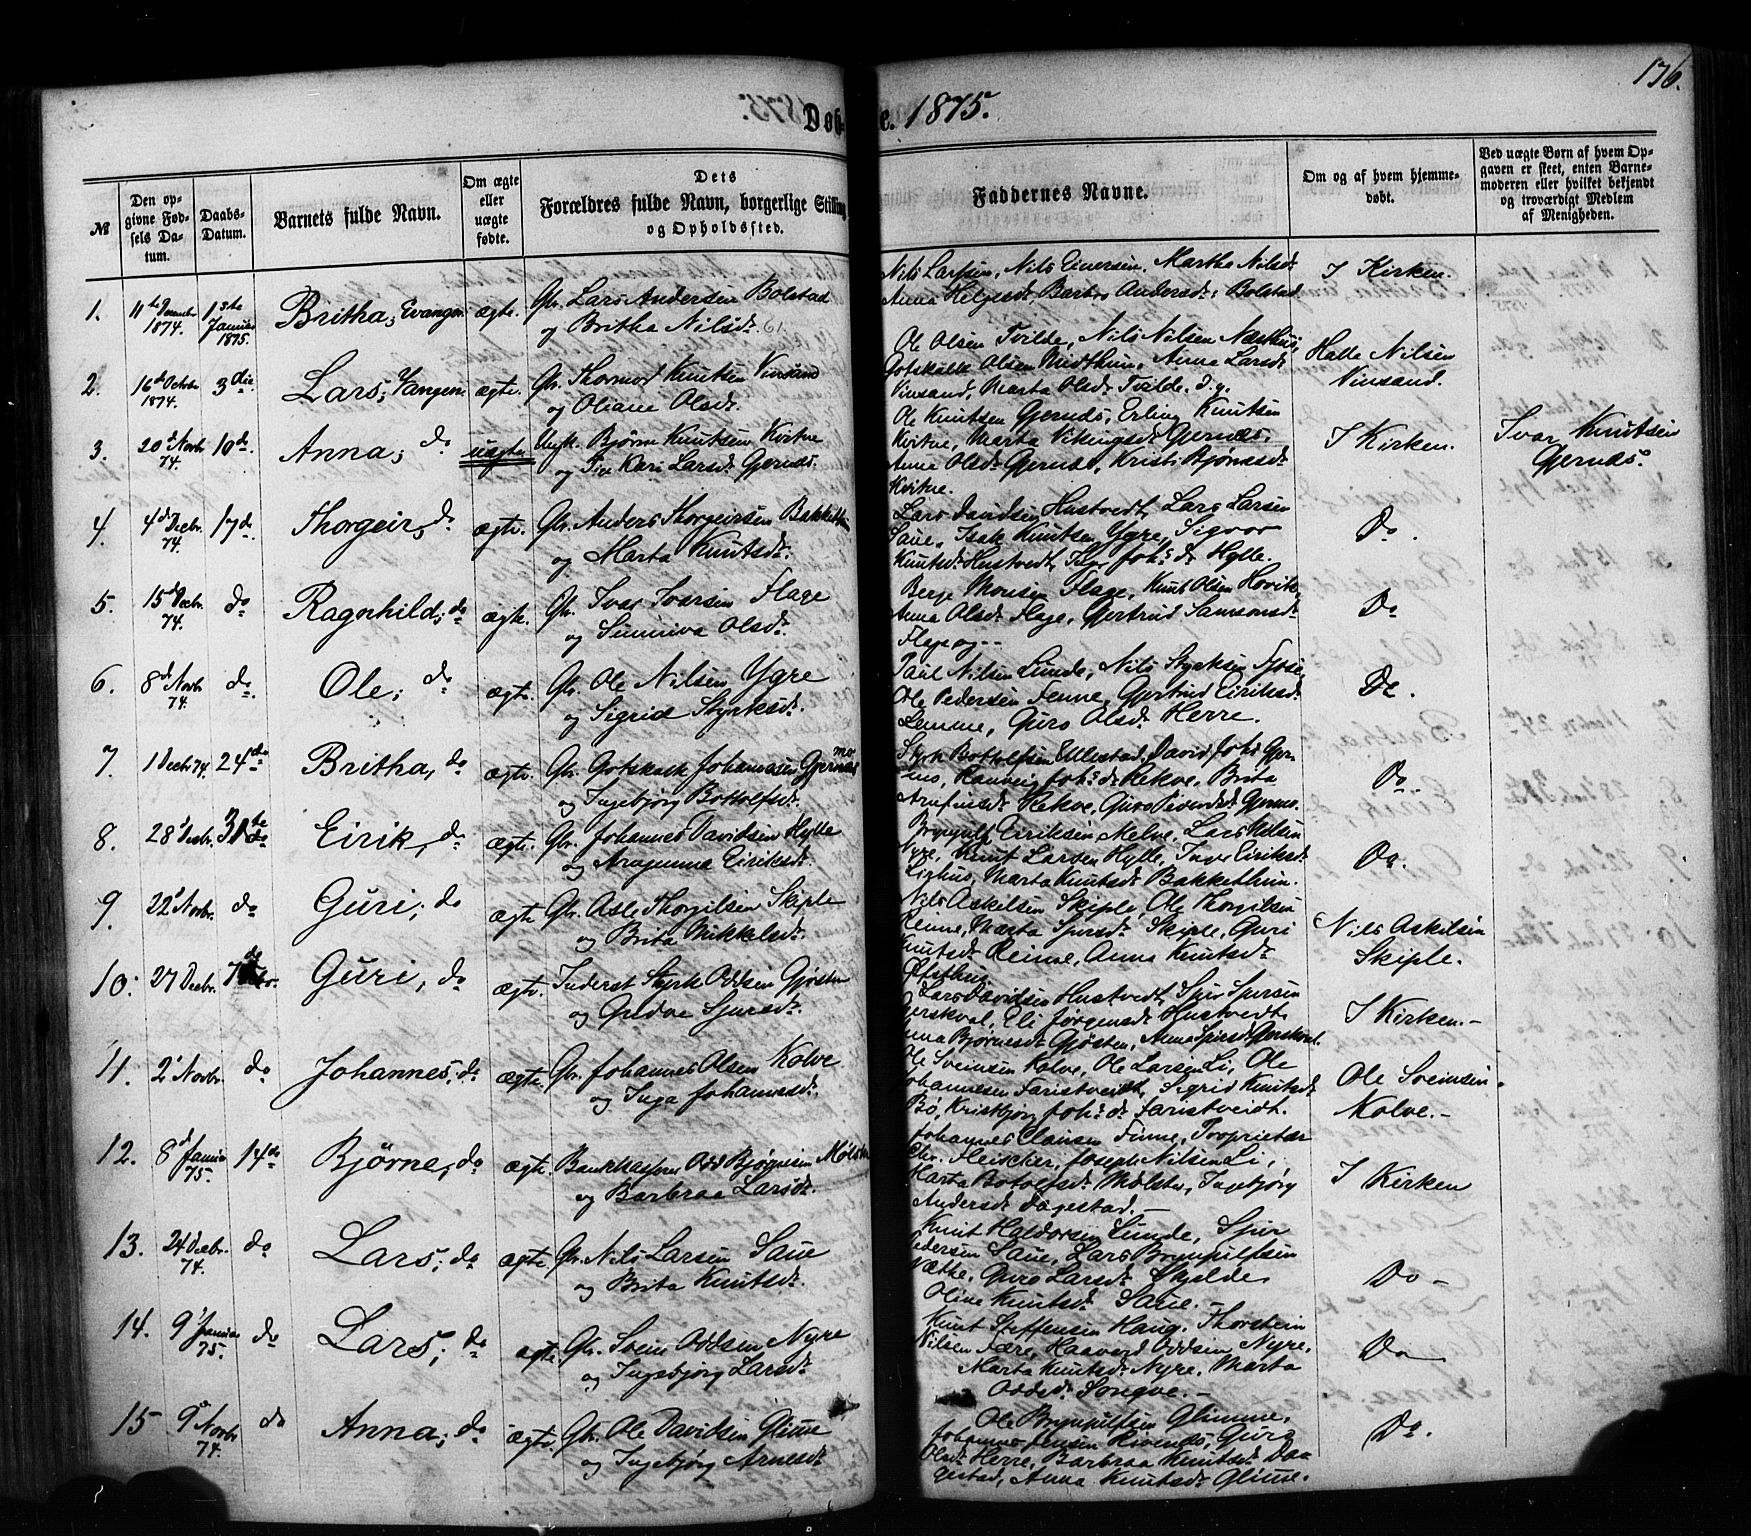 176.
Døbte. 1875.
№
Den opgivne Fødsels Datum.
Daabs-Datum.
Barnets fulde Navn.
Om ægte eller uægte fødte.
Dets Forældres fulde Navn, borgerlige Stilling og Opholdssted.
Faddernes Navne.
Om og af hvem hjemmedøbt.
Ved uægte Børn af hvem Opgaven er skeet, enten Barnemoderen eller hvilket bekjendt og troværdigt Medlem af Menigheden.
1. 1874. Januar 1875. Britha; ægte. Gbr. Lars Andersen Bolstad
og Britha Nilsdr.
Nils Larsen, Nils Eiversen, Martha Nilsdr.
Anna Helgesdr, Barbro Andersdr: Bolstad.
I Kirken.
2. 16d Octbr 1874. 3die. Lars; Vangen ægte. Gbr. Thormod Knutsen Vinsand
og Oliane Olsdr.
Ole Olsen Tvilde, Nils Nilsen
Gotskalk Olsen Midthun, Anna Larsdr
Vinsand, Marta Olsdr Tvilde.
Halle Nilsen
Vinsand.
3. 20d Novbr 74. 10de Anna; do uægte. Ungk. Bjørne Knutsen Kvitne
og Pige Kari Larsdr Gjernes.
Ole Knutsen Gjernes, Erling Knutsen
Kvitne, Marta Vikingsdr Gjernes,
Anna Olsdr Gjernes, Kristi Bjørnesdr
Kvitne.
I Kirken.
Ivar Knutsen
Gjernes.
4. 4de Decbr. 74. 17de Thorgeir, do ægte. Gbr. Anders Thorgeirsen Bakkethun
og Marta Knutsdr.
Lars Davidsen Hustvedt, Lars Larsen
Saue, Isak Knutsen Ygre, Sigvor
Knutsdr Hustvedt, Joh:s dr Hylle.
Do.
5. 15d Decbr. 74. do Ragnhild; do ægte. Gbr. Ivar Ivarsen Flage
og Sunniva Olsdr.
Berge Monsen Flage, Knut Olsen
Anna Olsdr Flage, Gjertrud Samsonsdr
Flage
Do
6. 8d Novbr 74. do. Ole; do ægte. Gbr. Ole Nilsen Ygre
og Sigrid Styrksdr.
Paul Nilsen Lunde, Nils Styrksen
Ole Pedersen Fenne, Gjertrud Eiriksdr
Guro Olsdr Herre.
Do.
7. 1 Decbr 74. 24de Britha, do ægte. Gbr. Gotskalk Johannesen Gjernes
og Ingebjørg Bottolfsdr.
Styrk Bottolfsen Ullestad, David Joh: Gjernes,
Ranveig Joh:s dr Rekve, Brita
Arnfinsdr Rekve, Guro Gjernes.
Do.
8. 28d Decbr. 31te Eirik, do ægte. Gbr. Johannes Davidsen Hylle
og Eiriksdr.
Brynjulf Eiriksen Melve, Lars Nilsen
Ygre, Knut Larsen Hylle, Inge Eiriksdr
Marta Knutsdr Bakkethun.
Do.
9. 22d Novbr. do Guri; do ægte Gbr. Asle Thorgilsen Skiple
og Brita Mikkelsdr.
Nils Askilsen Skiple, Ole Thorgilsen
Renne, Marta Sjursdr Skiple, Guri
Knutsdr Reime, Anna Knutsdr
Nils Askilsen
Skiple.
10. 27 Decbr. Guri, do ægte. Inderst Styrk Oddsen Gjøsten
og Sjursdr.
Lars Davidsen Hustvedt, Sjur Sjursen
Gjerskval, Eli Jørgensdr Hustvedt,
Anna Bjørnesdr Gjøsten, Anna Sjursdr Gjerskval.
I Kirken.
11. 2d Novbr. do Johannes; do ægte. Gbr. Johannes Olsen Kolve
og Inga Johannesdr.
Ole Sveinsen Kolve, Ole Larsen Li, Ole
Johannesen Taristveidt, Sigrid Knutsdr
Bø, Kristbjørg Joh:s dr Taristveidt.
Ole Sveinsen
Kolve.
12. 8d Januar 75. 14de Bjørne, do ægte. Bankkasserer Odd Bjørnesen Mølster
og Barbraa Larsdr.
Johannes Clausen Finne, Proprietær
Chr. Fleischer, Joseph Nilsen Li,
Marta Botolfsdr Mølster, Ingebjørg
Andersdr Dagestad.
I Kirken
13. 24 Decbr. 74. do Lars; do ægte. Gbr. Nils Larsen Saue
og Brita Knutsdr.
Knut Haldorsen Lunde, Sjur
Pedersen Saue, Lars Brynjulfsen
Guro Larsdr Skjelde,
Olina Knutsdr Saue.
Do
14. 9d Januar 75. do Lars; do ægte. Gbr. Svein Oddsen Nyre
og Ingebjørg Larsdr.
Knut Steffensen Haug, Thorstein
Nilsen Jære, Haavard Oddsen Nyre,
Marta Knutsdr Nyre, Marta
Oddsdr Songve.
Do
15 9d Novbr 74. do Anna; do ægte. Gbr. Ole Davidsen Glime
og Ingebjørg Arnesdr
Ole Brynjulfsen Glimme,
Johannes Jensen Rivenes, Guro
Olsdr Herre, Barbraa Knutsdr Dagestad,
Anna Knutsdr Glime.
Do.